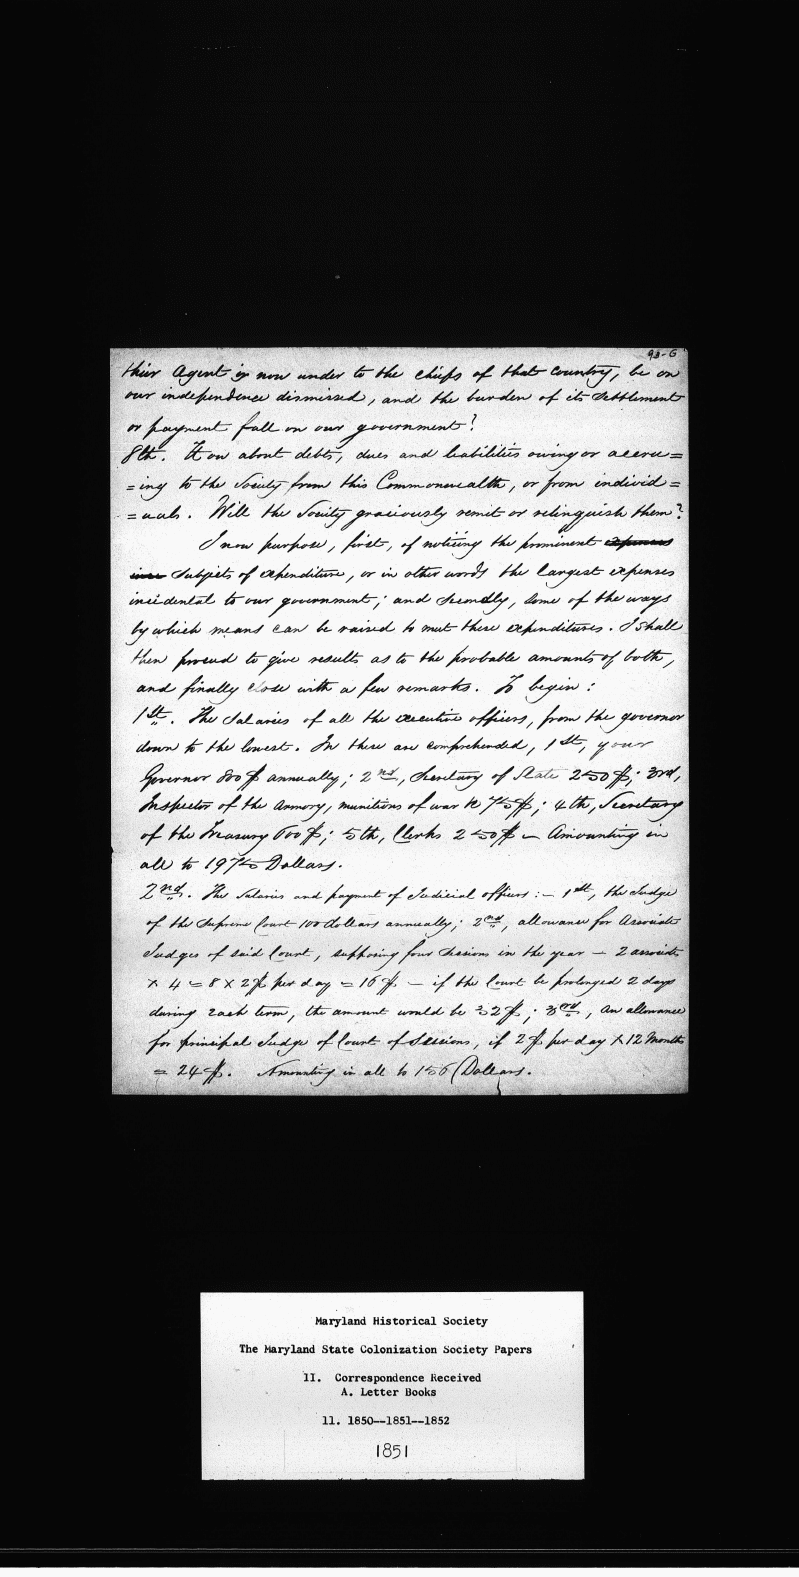 93-G
their Agent is now under to the chiefs of that country, be on
our independence dismissed, and the burden of its settlement
or payment fall on our government?
8th. How about debts, dues and liabilities owing or accru=
=ing to the Society from this Commonwealth, or from individ=
=uals. Will the Society graciously remit or relinquish them?
I now purpose, first, of noticing the prominent expenses
subjects of expenditure, or in other words the largest expenses
incidental to our government; and secondly, some of the ways
by which means can be raised to meet these expenditures. I shall
then proceed to give results as to the probable amounts of both,
and finally close with a few remarks. To begin:
1st. The Salaries of all the executive officers, from the governor
down to the lowest. In these are comprehended, 1st, your
Governor 800 $ annually; 2nd, Secretary of State 250 $; 3rd,
Inspector of the Armory, munitions of war &c 75 $; 4th, Secretary
of the Treasury 600 $; 5th, Clerks 250 $ – Amounting in
all to 1975 Dollars.
2nd. The Salaries and payment of Judicial officers: – 1st, the Judge
of the Supreme Court 100 dollars annually; 2nd, allowance for Associate
Judges of said Court, supposing four Sessions in the year – 2 associates
× 4 = 8 × 2 $ per day = 16 $ – if the Court be prolonged 2 days
during each term, the amount would be 32 $; 3rd, an allowance
for principal Judge of Court of Sessions, if 2 $ per day × 12 Months
= 24 $. Amounting in all to 156 Dollars.
Maryland Historical Society
The Maryland State Colonization Society Papers
II. Correspondence Received
A. Letter Books
11. 1850--1851--1852
1851